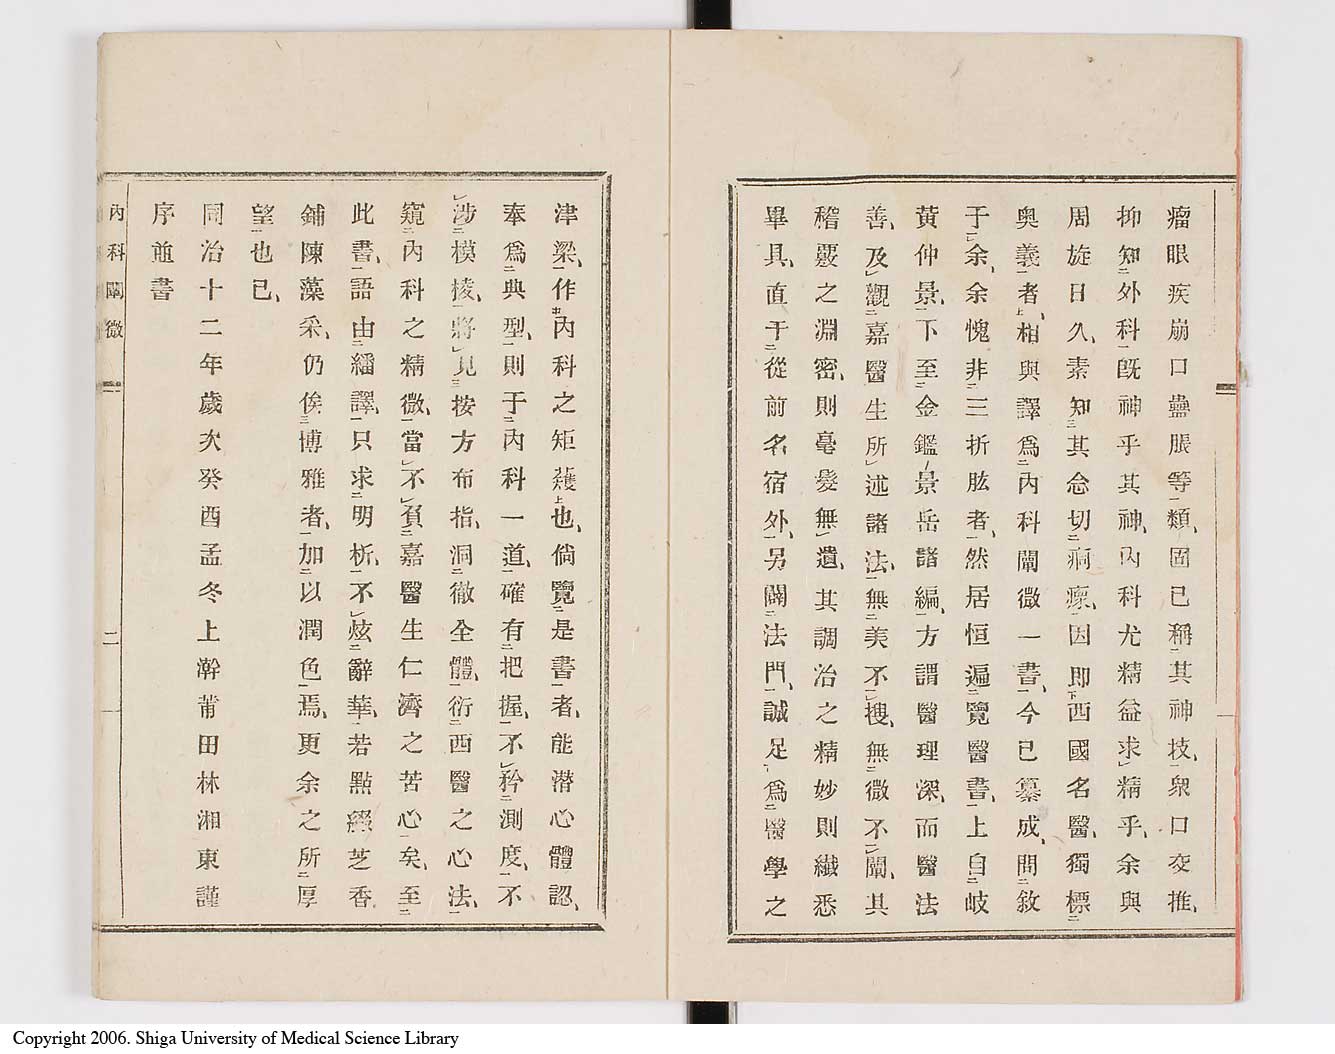 瘤眼疾崩口蠱脹等類固已稱其神技衆口交推
抑知外科既神乎其神內科尤精益求精乎余與
周旋日久素知其念切痌瘝因即西國名醫獨標
奧義者相與譯爲內科闡微一書今已纂成問敘
于余余愧非三折肱者然居恒遍覽醫書上自岐
黃仲景下至金鑑景岳諸編方謂醫理深而醫法
善及觀嘉醫生所述諸法無美不搜無微不闡其
稽覈之淵密則毫髮無遺其調治之精妙則纖悉
畢具直于從前名宿外另闢法門誠足爲醫學之
津梁作內科之矩矱也倘覽是書者能潛心體認
奉爲典型則于內科一道確有把握不矜測度不
涉模棱將見按方布指洞徹全體衍西醫之心法
窺內科之精微當不負嘉醫生仁濟之苦心矣至
此書語由繙譯只求明析不炫辭華若點綴芝香
鋪陳藻采仍俟博雅者加以潤色焉更余之所厚
望也已
同治十二年歲次癸酉孟冬上澣莆田林湘東謹
序並書
內科闡微
二
Copyright 2006. Shiga University of Medical Science Library